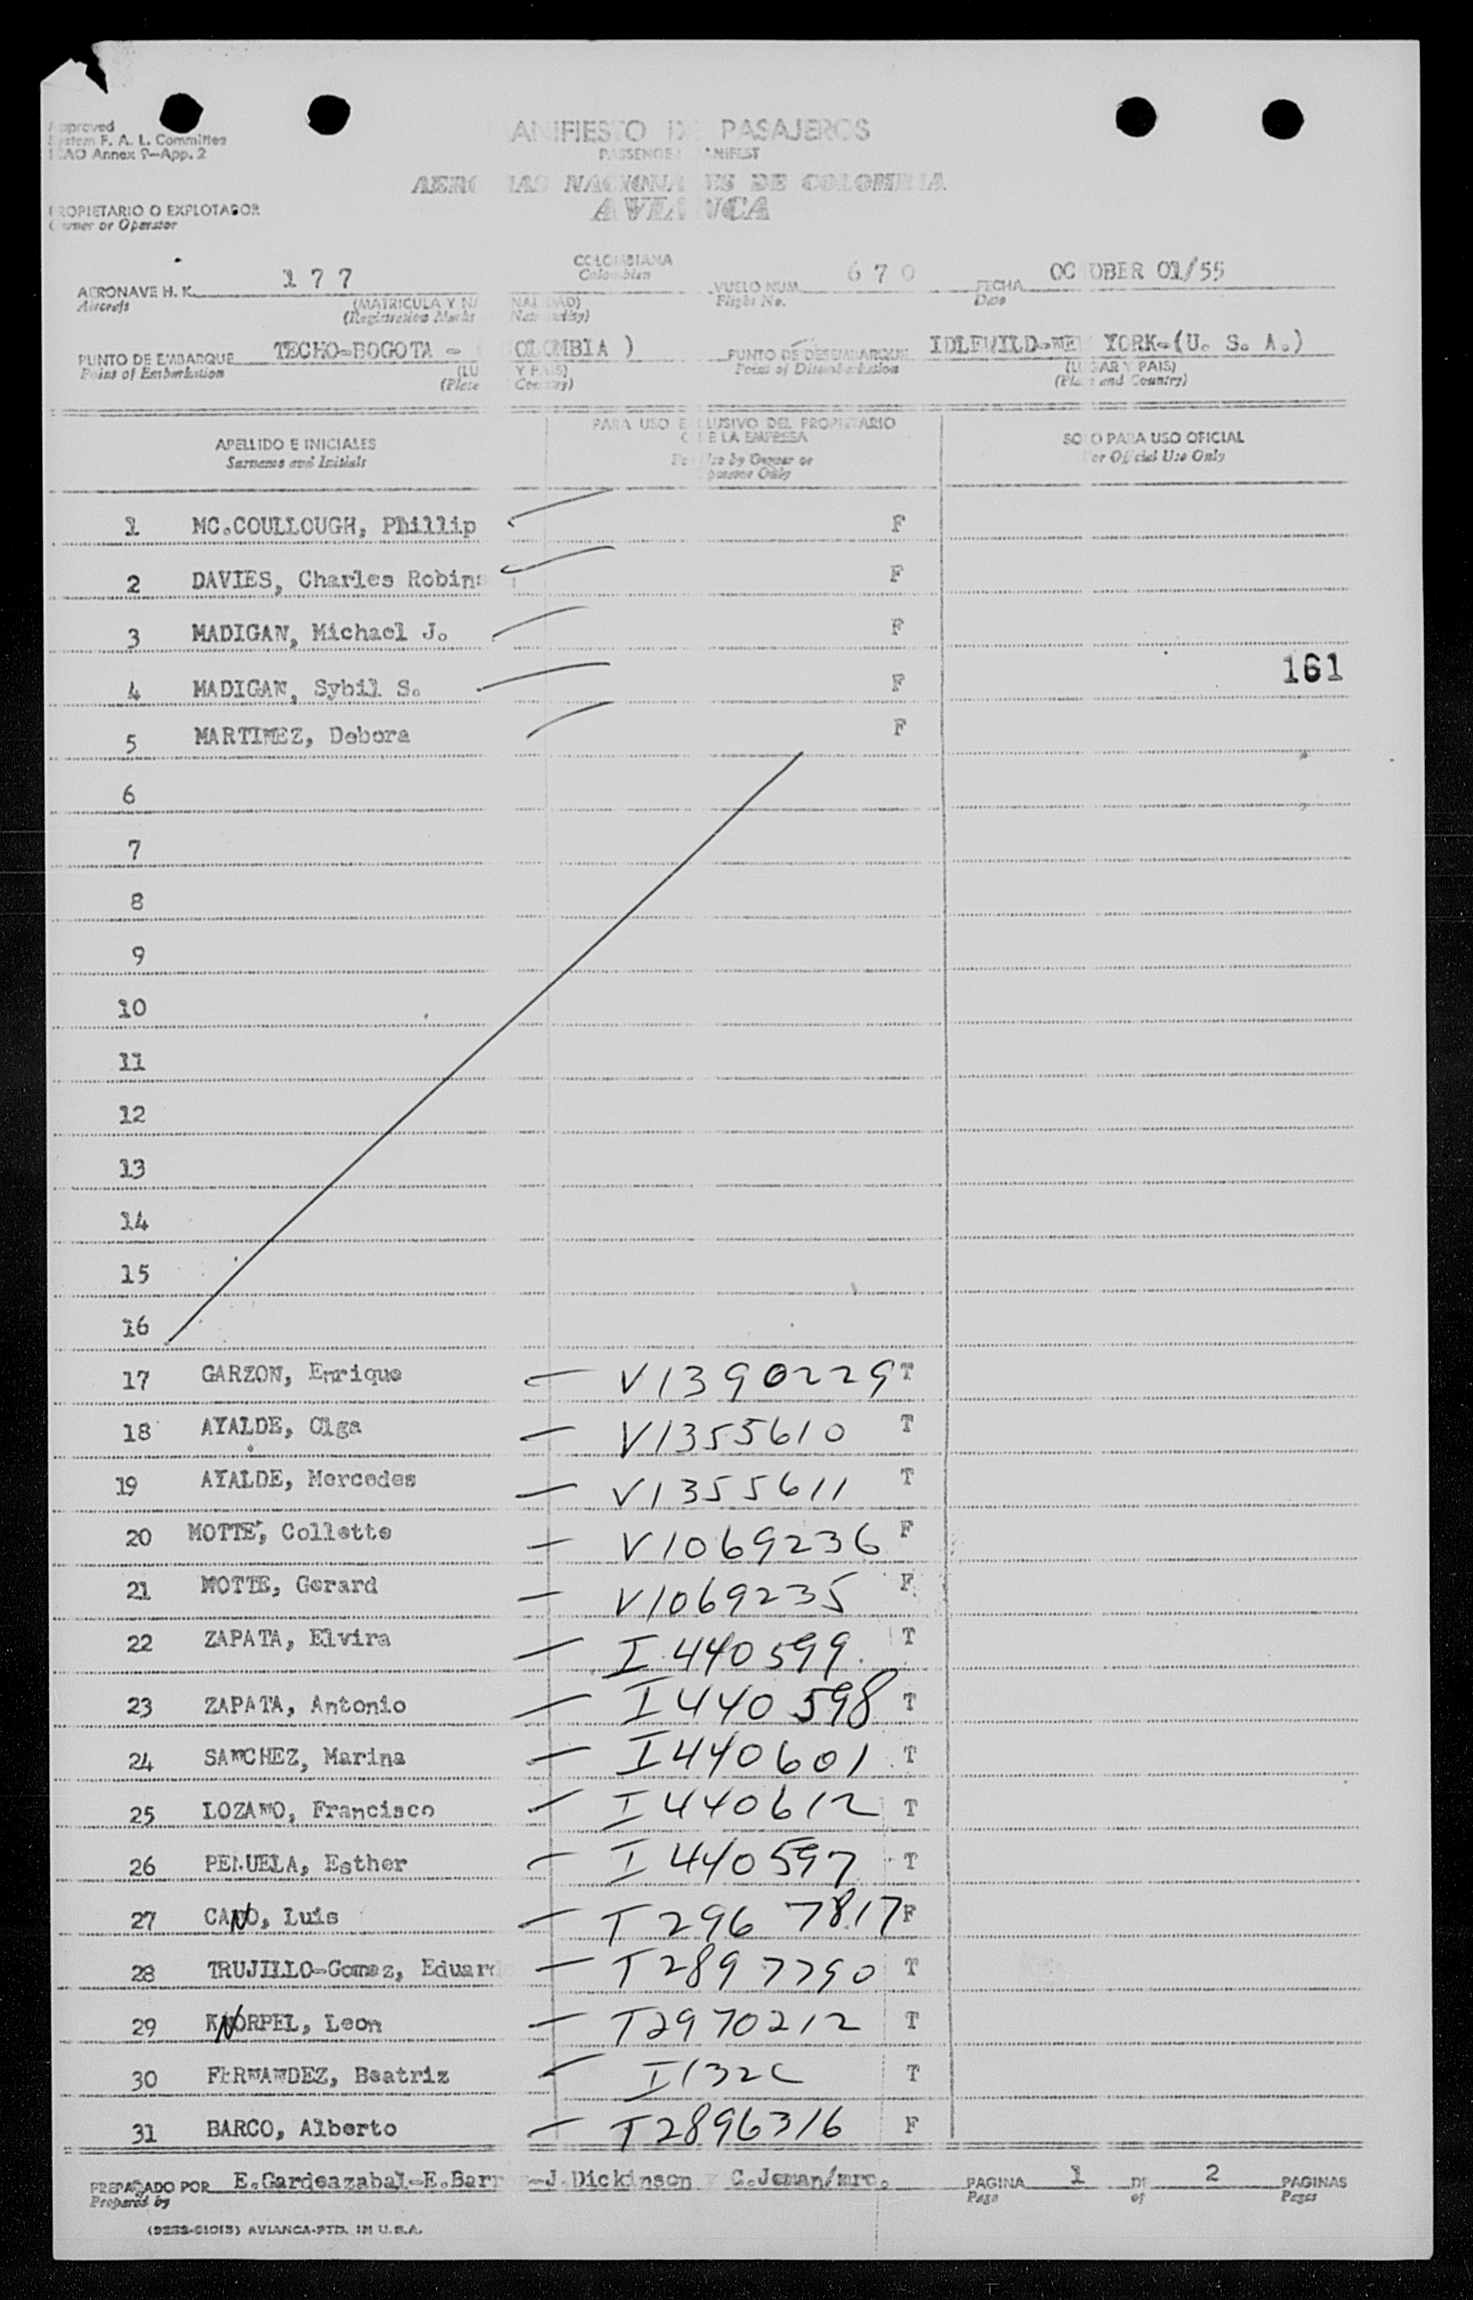 Approved
System F. A. L. Committee
ICAO Annex 9-App. 2
MANIFIESTO DE PASAJEROS
PASSENGER MANIFEST
AEROVIAS NACIONALES DE COLOMBIA
AVIANCA
PROPIETARIO O EXPLOTADOR
Owner or Operator
COLOMBIANA
Colombian
AERONAVE H. K. 177 VUELO NUM. 670 FECHA OCTOBER 01/55
Aircraft (MATRICULA Y NACIONALIDAD) Flight No. Date
(Registration Marks Nationality)
PUNTO DE EMBARQUE TECHO-BOGOTA - COLOMBIA ) PUNTO DE DESEMBARQUE IDLEWILD-NEW YORK-(U. S. A.)
Point of Embarkation (LUGAR Y PAIS) Point of Disembarkation (LUGAR Y PAIS)
(Place Country) (Place and Country)
APELLIDO E INICIALES PARA USO EXCLUSIVO DEL PROPIETARIO O DE LA EMPRESA SOLO PARA USO OFICIAL
Surname and Initials For Use by Owner or Operator Only For Official Use Only
1 MC.COULLOUGH, Phillip F
2 DAVIES, Charles Robins F
3 MADIGAN, Michael J. F
161
4 MADIGAN, Sybil S. F
5 MARTINEZ, Debora F
6
7
8
9
10
11
12
13
14
15
16
17 GARZON, Enrique V1390229 T
18 AYALDE, Olga V1355610 T
19 AYALDE, Mercedes V1355611 T
20 MOTTE, Collette V1069236 F
21 MOTTE, Gerard V1069235 F
22 ZAPATA, Elvira I440599 T
23 ZAPATA, Antonio I440598 T
24 SANCHEZ, Marina I440601 T
25 LOZANO, Francisco I440612 T
26 PENUELA, Esther I440597 T
27 CANO, Luis T296 7817 F
28 TRUJILLO-Gomez, Eduardo T2897790 T
29 KNORPEL, Leon T2970212 T
30 FERNANDEZ, Beatriz I132C T
31 BARCO, Alberto T2896316 F
PREPARADO POR E.Gardeazabal-E.Barr -J.Dickinson C.Jeman/mrc. PAGINA 1 DE 2 PAGINAS
Prepared by Page of Pages
(9232-01013) AVIANCA-PTD. IN U.S.A.